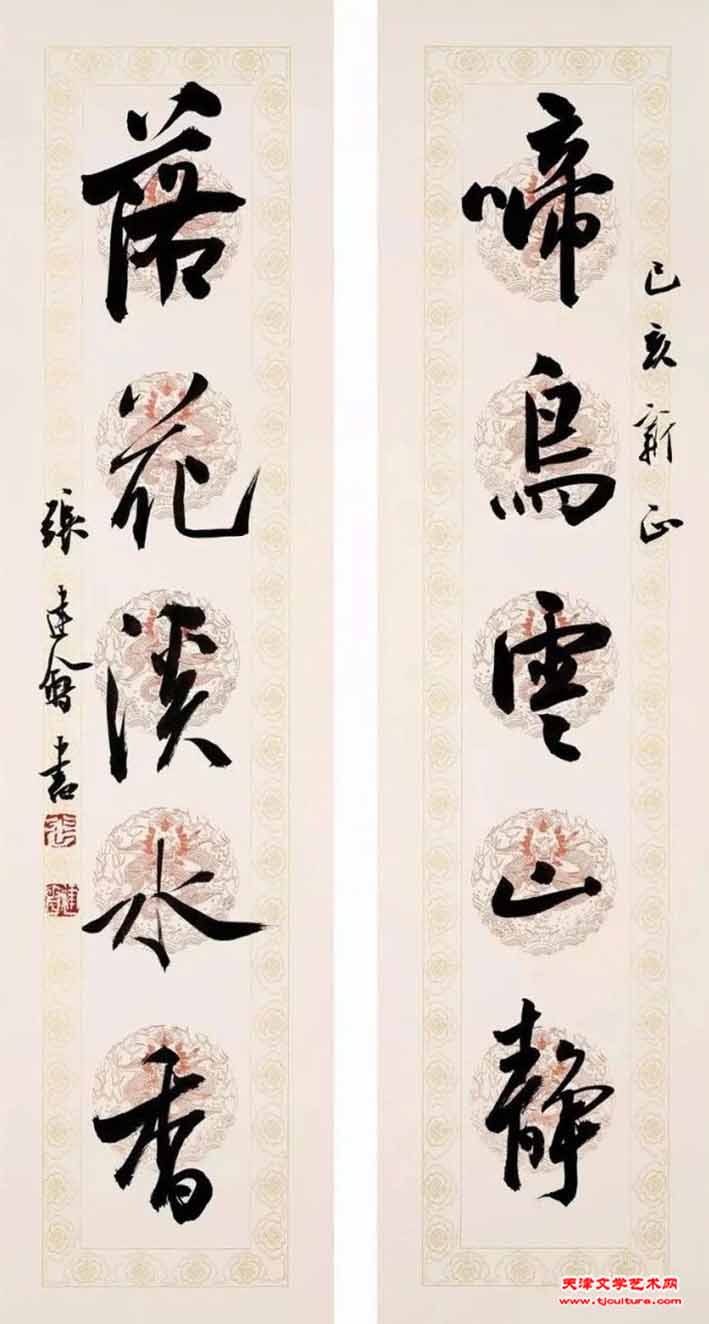 己亥新正
啼鳥雲山静
落花溪水香
張建會書
天津文学艺术网
www.tjculture.com